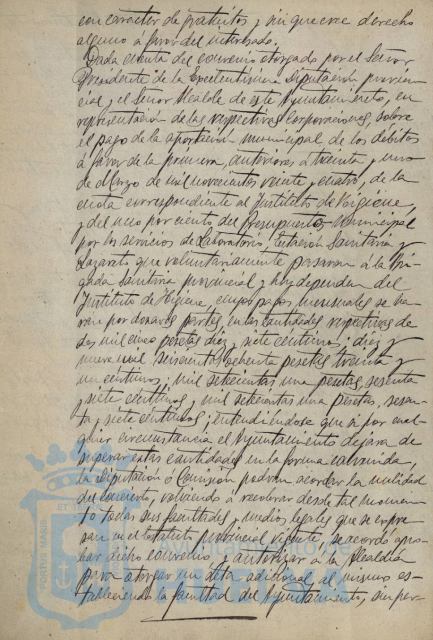 con caracter de gratuitos y sin que cree derecho
alguno á favor del interesado.
Dada cuenta del convenio otorgado por el Señor
Presidente de la Excelentísima Diputación provin-
cial y el Señor Alcalde de este Ayuntamiento, en
representación de las respectivas Corporaciones, sobre
el pago de la aportación municipal de los débitos
á favor de la primera, anteriores á treinta y uno
de Marzo de mil novecientos veinte y cuatro, de la
cuota correspondiente al Instituto de Higiene,
y del uno por ciento del Presupuesto Municipal
por los servicios de Laboratorio, Estación Sanitaria y
Lazareto que voluntariamente pasaron á la Bri-
gada Sanitaria provincial y hoy dependen del
Instituto de Higiene, cuyos pagos mensuales se ha-
rán por dozavas partes, en las cantidades respectivas de
dos mil cinco pesetas diez y siete céntimos; diez y
nueve mil seiscientas ochenta pesetas treinta y
un céntimos; mil setecientas una pesetas, sesenta
y siete céntimos, y mil setecientas una pesetas, sesen-
ta y siete céntimos; entendiéndose que si por cual-
quier circunstancia el Ayuntamiento dejara de
ingresar estas cantidades en la forma convenida,
la Diputación ó Comisión podrán acordar la nulidad
del concierto, volviendo á recobrar desde tal momen-
to todas sus facultades y medios legales que se expre-
san en el Estatuto provincial vigente, se acordó apro-
bar dicho convenio y autorizar á la Alcaldía
para otorgar un acta adicional al mismo es-
tableciendo la facultad del Ayuntamiento, sin per-
PORTUS MARIS